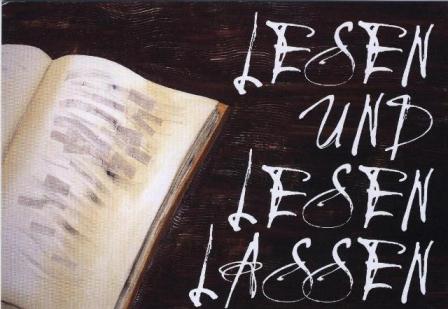 LESEN
UND
LESEN
LASSEN